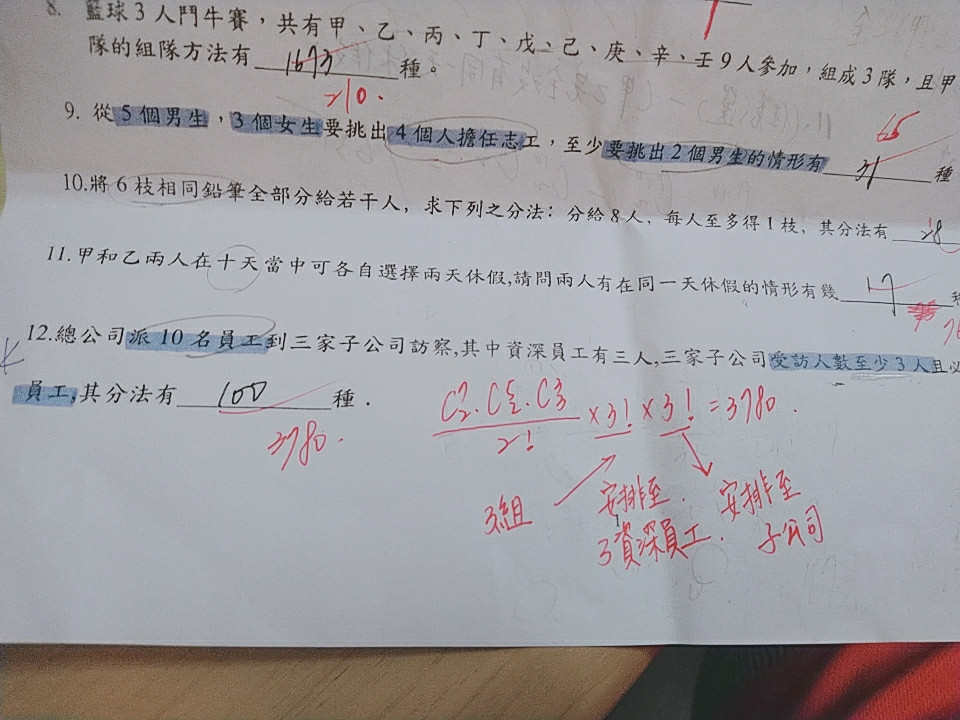 8. 籃球3人鬥牛賽，共有甲、乙、丙、丁、戊、己、庚、辛、壬9人參加，組成3隊，且甲
隊的組隊方法有 1673 種。
210.
9. 從5個男生，3個女生要挑出4個人擔任志工，至少要挑出2個男生的情形有 31 種
65
10.將6枝相同鉛筆全部分給若干人，求下列之分法：分給8人，每人至多得1枝，其分法有 28
11.甲和乙兩人在十天當中可各自選擇兩天休假,請問兩人有在同一天休假的情形有幾 17
12.總公司派10名員工到三家子公司訪察,其中資深員工有三人,三家子公司受訪人數至少3人且必
員工,其分法有 100 種.
3780.
C⁷₂·C⁵₂·C³₃ / 2! ×3!×3!=3780.
3組 安排至. 安排至
3資深員工. 子公司